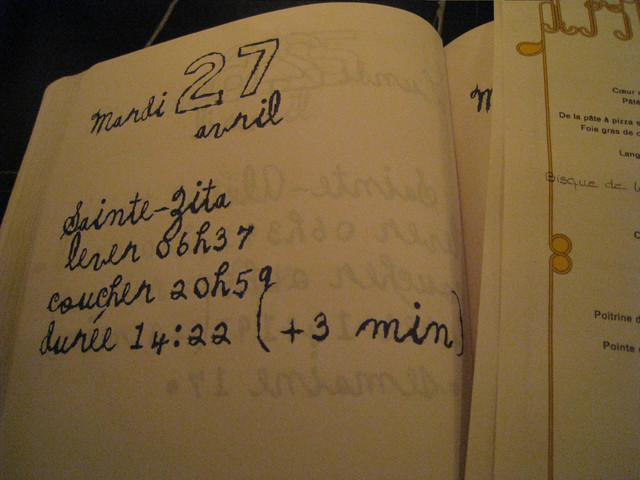 Mardi 27
avril
Sainte-Zita
lever 06h37
coucher 20h59
durée 14:22 (+3 min)
M
Cœur
De la pâte à pizza
Foie gras de
Lang
Bisque de
Poitrine
Pointe